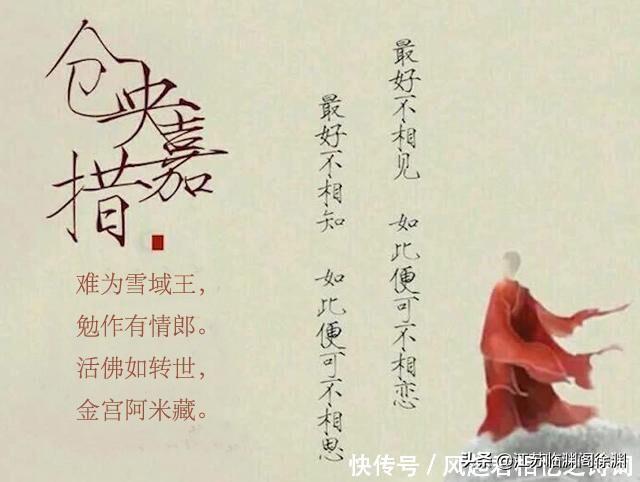 仓央嘉措
最好不相见 如此便可不相恋
最好不相知 如此便可不相思
难为雪域王，
勉作有情郎。
活佛如转世，
金宫阿米藏。
快传号 / 风起
头条 @江苏临渊阁徐渊